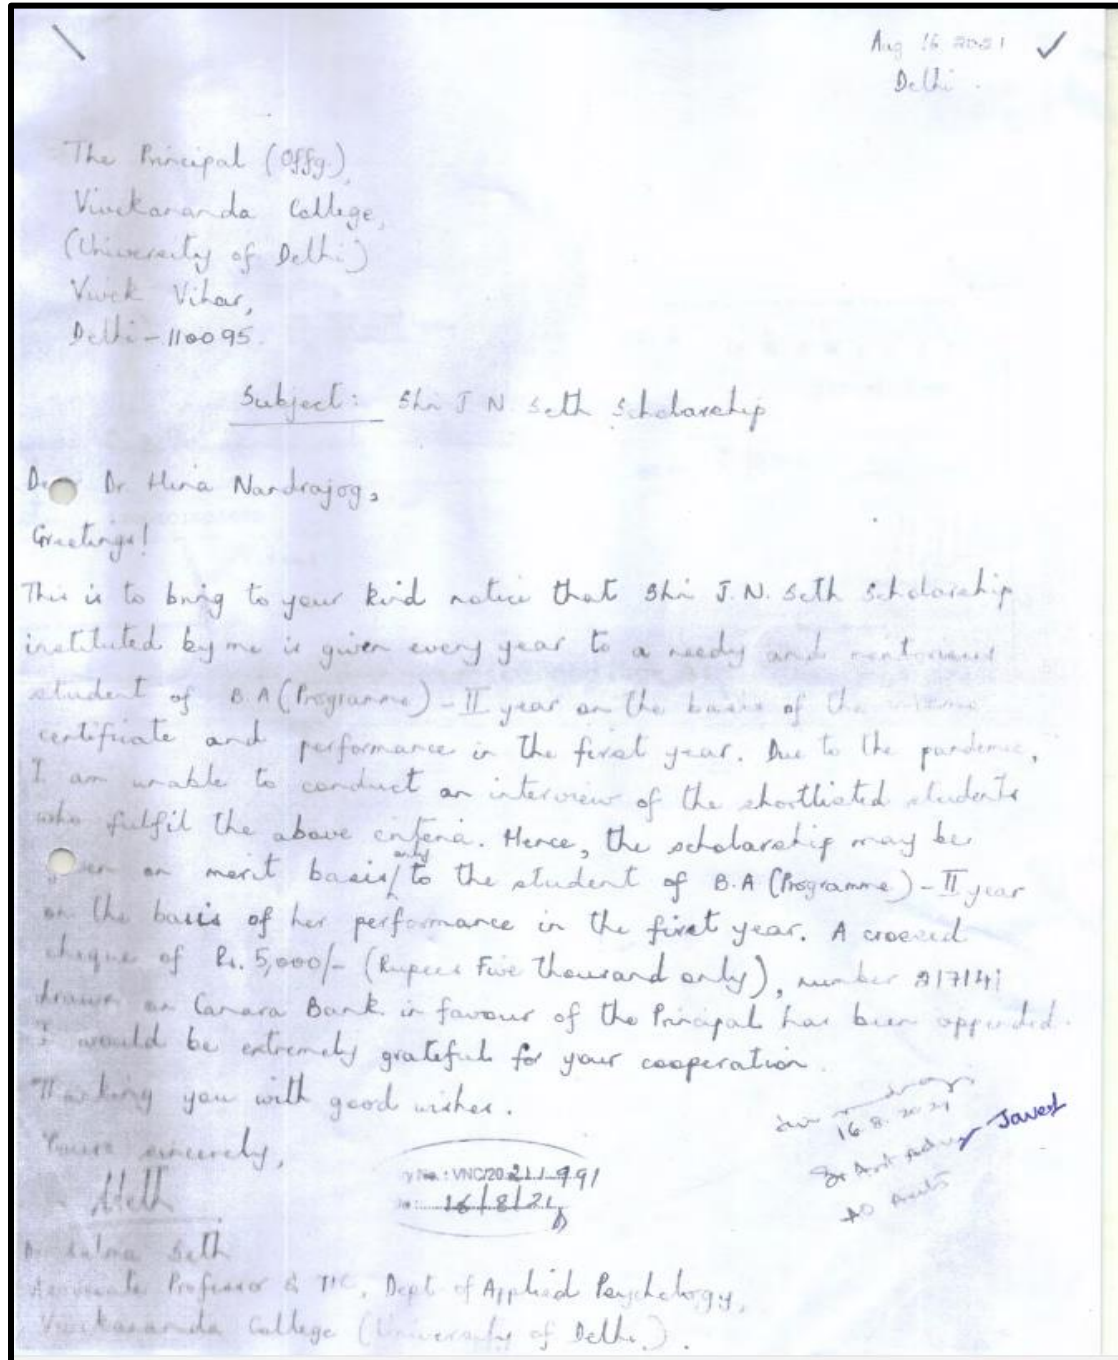 Aug 16 2021
Delhi
The Principal (Offg.),
Vivekananda College,
(University of Delhi)
Vivek Vihar,
Delhi - 110095.
Subject: Shri J N Seth Scholarship
Dr. Hina Nandrajog,
Greetings!
This is to bring to your kind notice that Shri J.N. Seth Scholarship
instituted by me is given every year to a needy and meritorious
student of B.A (Programme) - II year on the basis of the income
certificate and performance in the first year. Due to the pandemic,
I am unable to conduct an interview of the shortlisted students
who fulfil the above criteria. Hence, the scholarship may be
given on merit basis only to the student of B.A (Programme) - II year
on the basis of her performance in the first year. A crossed
cheque of Rs. 5,000/- (Rupees Five thousand only), number
drawn on Canara Bank in favour of the Principal has been appended.
I would be extremely grateful for your cooperation.
Thanking you with good wishes.
16.8.2021
Javed
Yours sincerely,
No.: VNC/2021/991
16/8/21
Seth
Associate Professor & TIC, Dept of Applied Psychology,
Vivekananda College (University of Delhi).